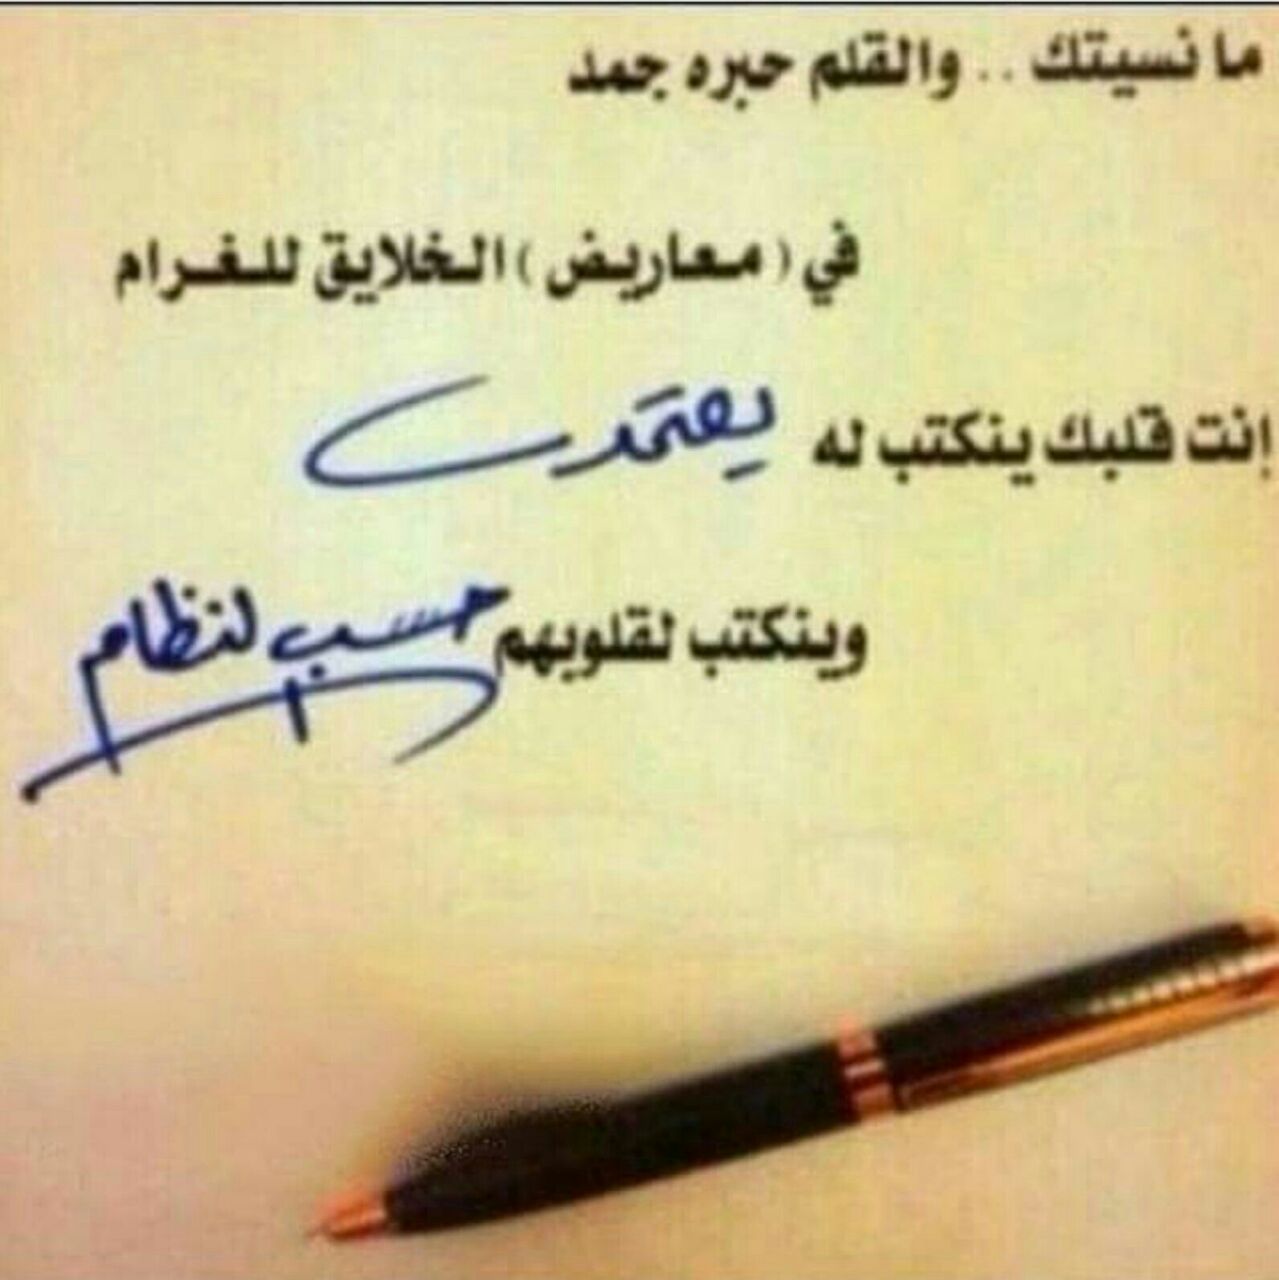 ما نسيتك .. والقلم حبره جمد
في (معاريض) الخلايق للغرام
إنت قلبك ينكتب له يعتمد
وينكتب لقلوبهم حسب لنظام